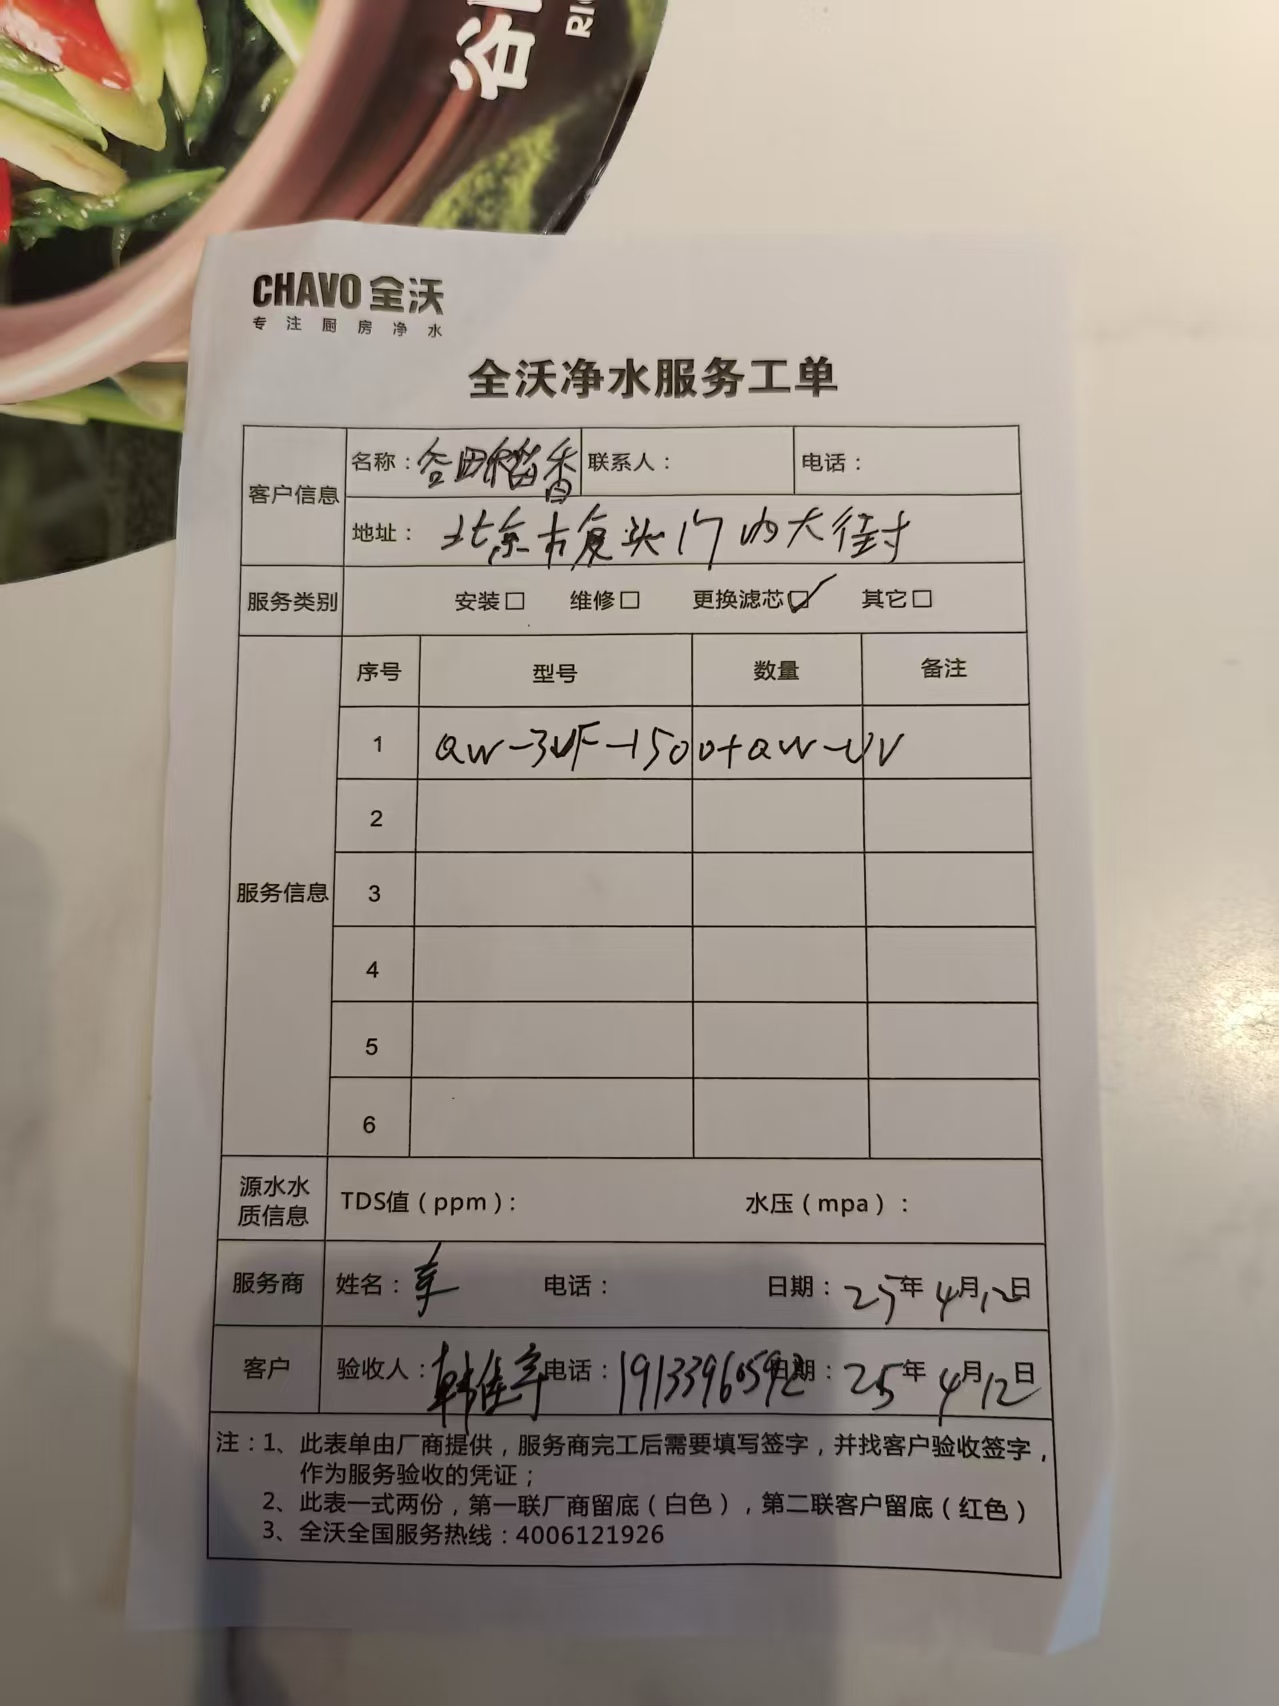 谷
RI
CHAVO 全沃
专注厨房净水
全沃净水服务工单
客户信息 名称：谷田稻香 联系人： 电话：
地址：北京市复头门内大街
服务类别 安装□ 维修□ 更换滤芯☑ 其它□
服务信息 序号 型号 数量 备注
1 QW-3UF-1500+QW-UV
2
3
4
5
6
源水水质信息 TDS值（ppm）： 水压（mpa）：
服务商 姓名： 电话： 日期：25年4月12日
客户 验收人：韩佳宇 电话：19133960592 日期：25年4月12日
注：1、此表单由厂商提供，服务商完工后需要填写签字，并找客户验收签字，
作为服务验收的凭证；
2、此表一式两份，第一联厂商留底（白色），第二联客户留底（红色）
3、全沃全国服务热线：4006121926